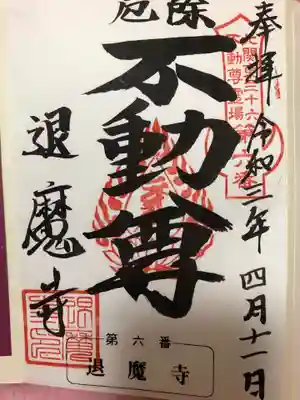 奉拝 令和三年 四月十一日
厄除
不動尊
退魔寺
不動尊霊場
第六番
退魔寺